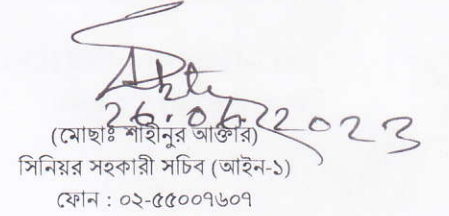 26.06.2023
(মোছাঃ শাহীনুর আক্তার)
সিনিয়র সহকারী সচিব (আইন-১)
ফোন : ০২-৫৫০০৭৬০৭